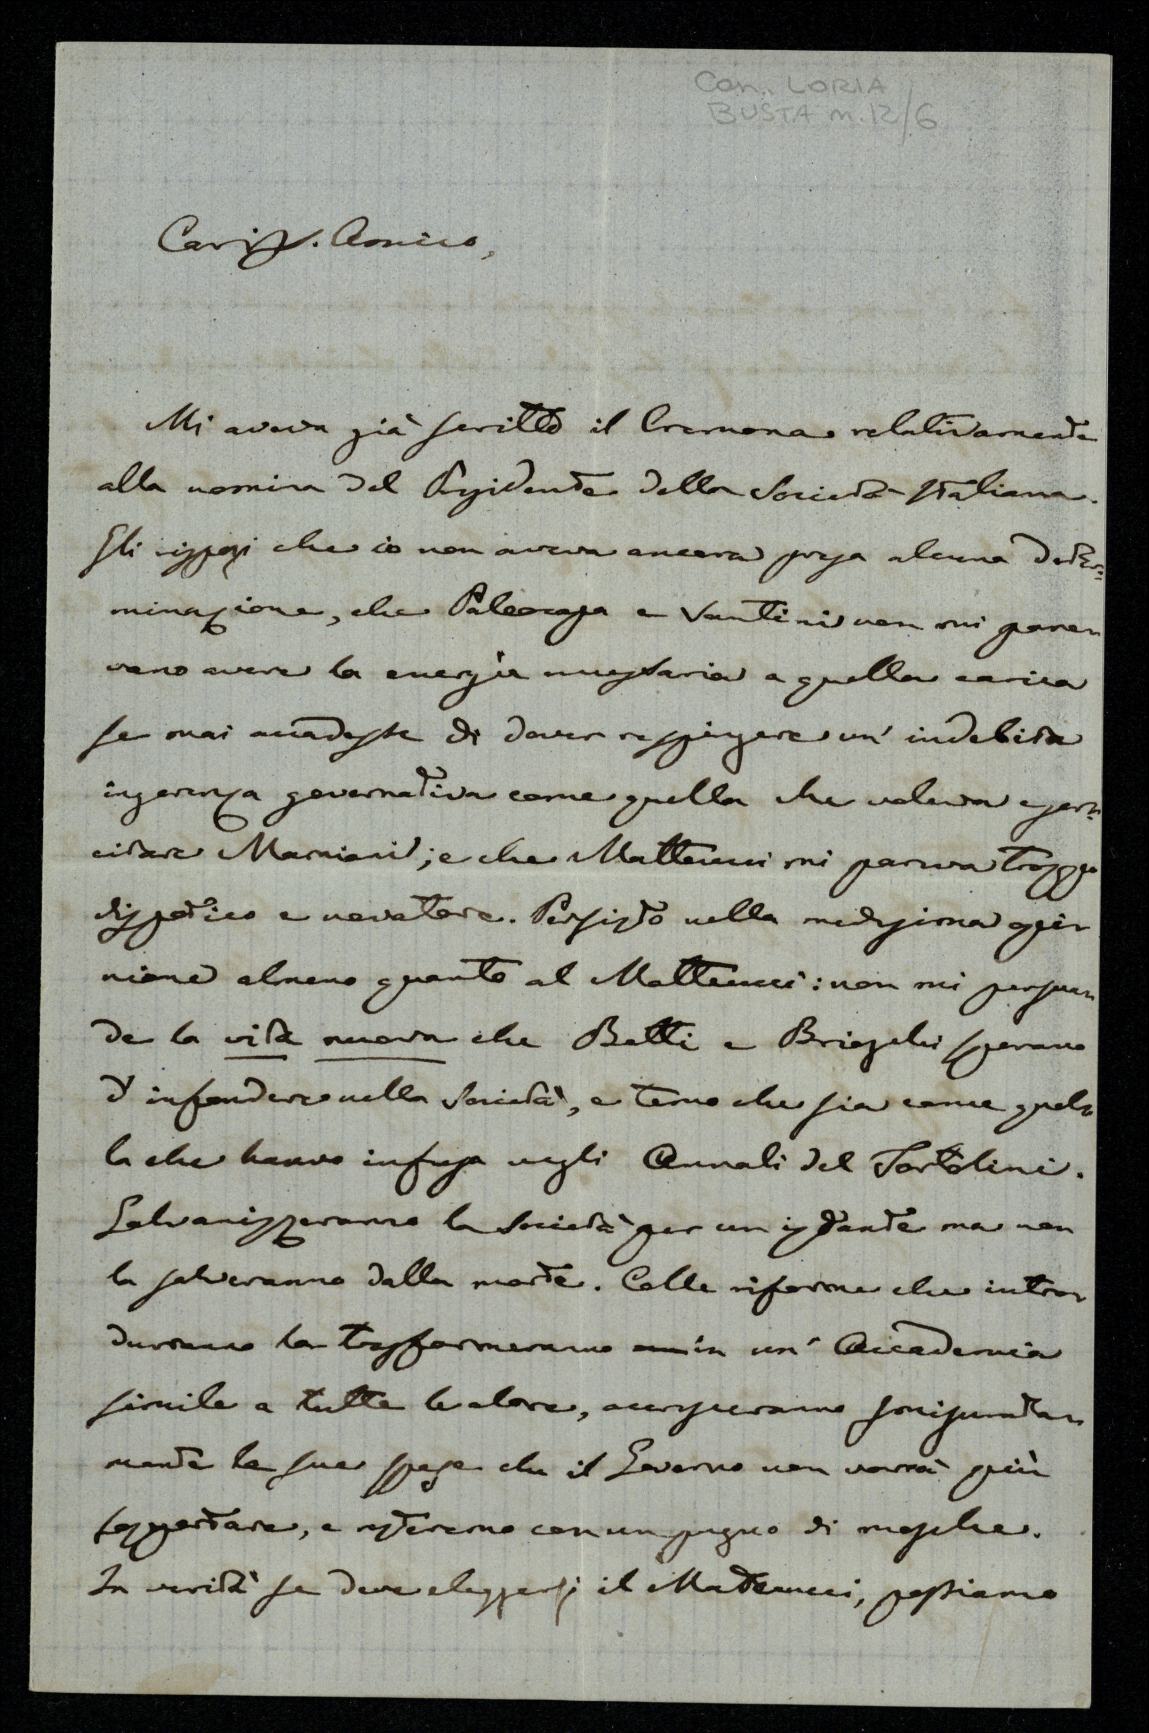 Con. LORIA
BUSTA n. 12/6
Cariss. Amico,
Mi aveva già scritto il Cremona relativamente
alla nomina del Presidente della Società Italiana.
Gli risposi che io non aveva ancora presa alcuna deter-
minazione, che Paleocapa e Santini non mi pare-
vano avere la energia necessaria a quella carica
se mai accadesse di dover respingere un' indebita
ingerenza governativa come quella che voleva eser-
citare Mamiani; e che Matteucci mi pareva troppo
dispotico e novatore. Persisto nella medesima opi-
nione almeno quanto al Matteucci: non mi persua-
de la vita nuova che Betti e Brioschi sperano
d' infondere nella Società, e temo che sia come quel-
la che hanno infusa negli Annali del Tortolini.
Galvanizzeranno la Società per un istante ma non
la salveranno dalla morte. Colle riforme che intro-
durranno la trasformeranno in un' Accademia
simile a tutte le altre, accresceranno smisurata-
mente le sue spese che il Governo non vorrà più
sopportare, e resteremo con un pugno di mosche.
In verità se deve eleggersi il Matteucci, possiamo